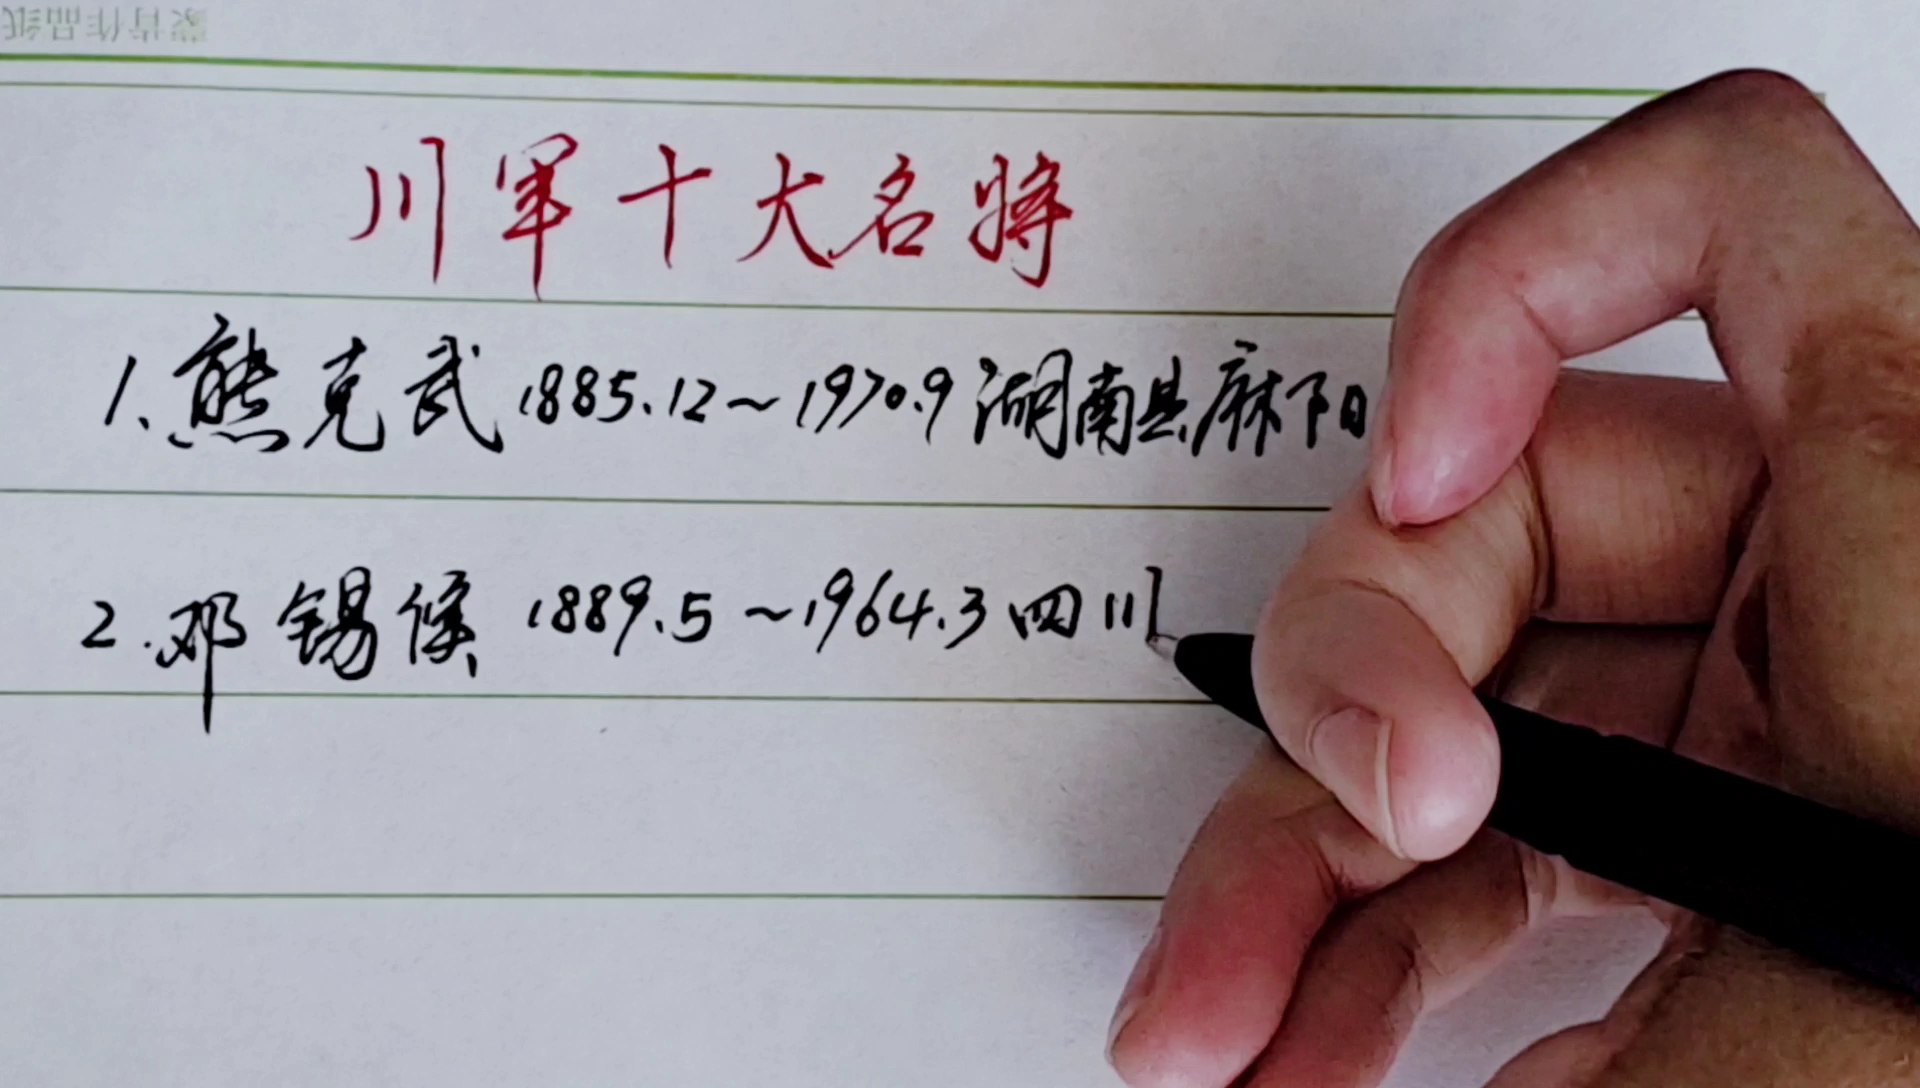 蒙肯作品纸
川军十大名将
1.熊克武 1885.12~1970.9 湖南县麻阳
2.邓锡侯 1889.5~1964.3 四川